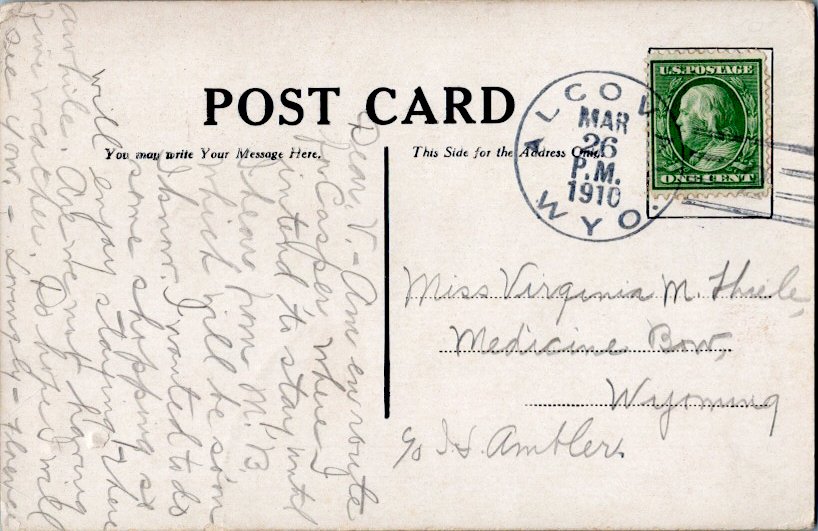 POST CARD
You may write Your Message Here.
This Side for the Address Only.
ALCOVA
MAR
26
P.M.
1910
WYO.
U.S. POSTAGE
ONE CENT
Dear V. - Am en route
for Casper, where I
intend to stay until
I hear from M. B
which will be soon
I know. I wanted to do
some shopping so
will enjoy staying there
awhile. Are we not having
fine weather. Do hope I will
see you. - Lovingly -
Miss Virginia M. Thiele,
Medicine Bow,
Wyoming
c/o J. S. Ambler.